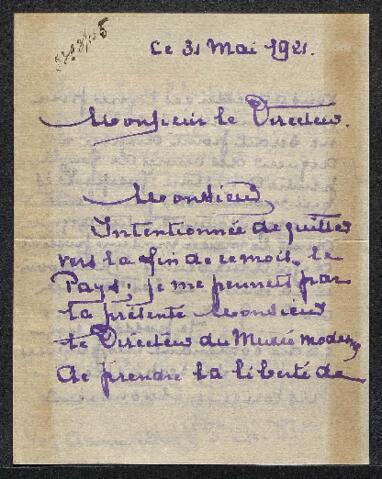 Le 31 Mai 1921.
Monsieur le Directeur.
Monsieur,
Intentionnée de quitter
vers la fin de ce mois, le
Pays; je me permets par
la présente Monsieur
le Directeur du Musée moderne
de prendre la liberté de